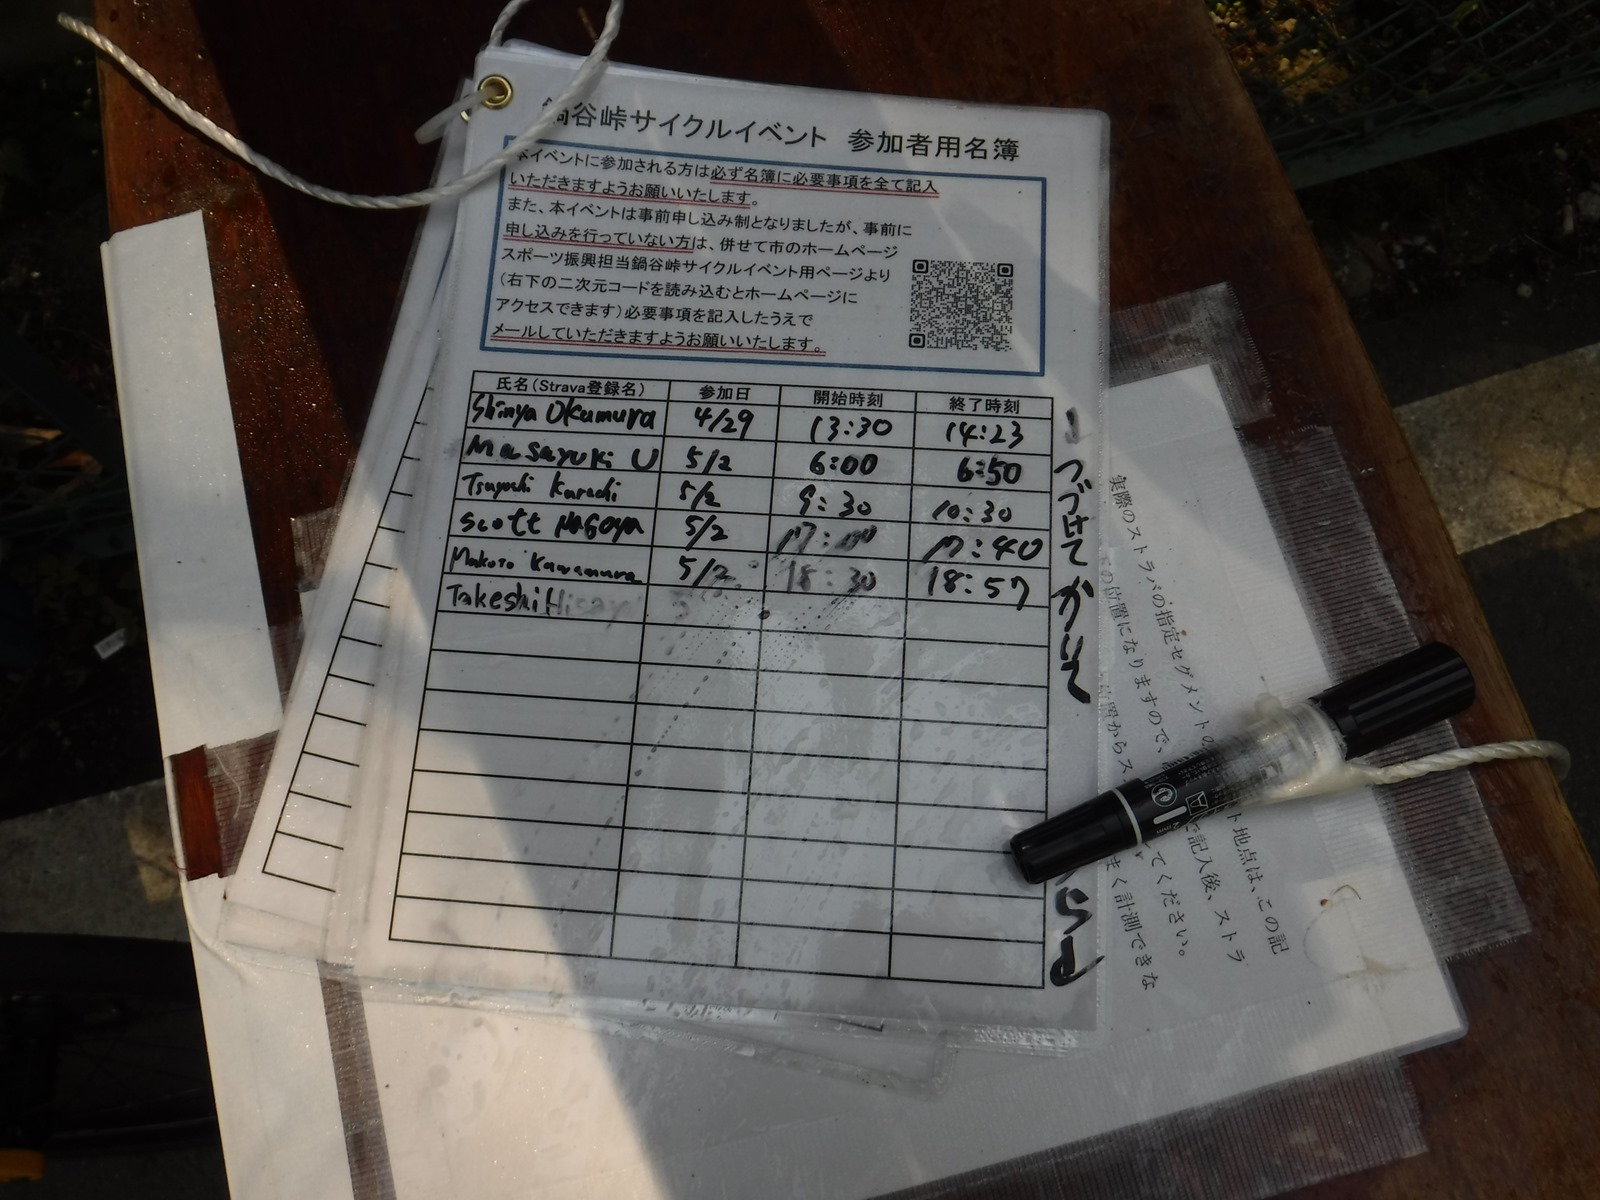 鍋谷峠サイクルイベント 参加者用名簿
本イベントに参加される方は必ず名簿に必要事項を全て記入
いただきますようお願いいたします。
また、本イベントは事前申し込み制となりましたが、事前に
申し込みを行っていない方は、併せて市のホームページ
スポーツ振興担当鍋谷峠サイクルイベント用ページより
(右下の二次元コードを読み込むとホームページに
アクセスできます)必要事項を記入したうえで
メールしていただきますようお願いいたします。
氏名(Strava登録名) 参加日 開始時刻 終了時刻
Shinya Okumura 4/29 13:30 14:23
Masayuki U 5/2 6:00 6:50
Tsuyoshi 5/2 9:30 10:30
Scott NAGOYA 5/2 17:00 17:40
Makoto Kawamura 5/2 18:30 18:57
Takeshi
つづけてかいて
実際のストラバの指定セグメントの
ト地点は、この記
の位置になりますので、
で記入後、ストラ
位置からス
してください。
まく計測できな